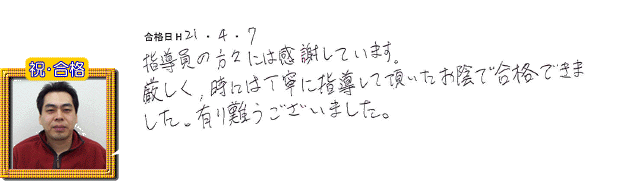 合格日 H21・4・7
指導員の方々には感謝しています。
厳しく、時には丁寧に指導して頂いたお陰で合格できま
した。有り難うございました。
祝・合格